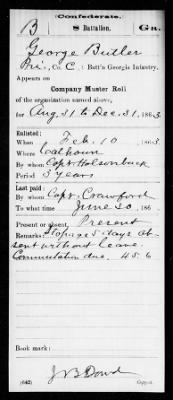 Confederate.
B 8 Battalion. Ga.
George Butler
Pri, Co. C; Batt'n Georgia Infantry.
Appears on
Company Muster Roll
of the organization named above,
for Aug 31 to Dec. 31, 1863
Enlisted:
When Feb. 10 1863
Where Calhoun
By whom Capt.
Period 3 years
Last paid:
By whom Capt. Crawford
To what time June 30, 186
Present or absent, Present
Remarks: Stopage 5 days ab-
sent without leave.
Commutation due 45.6
Book mark:
(642) Copyist.